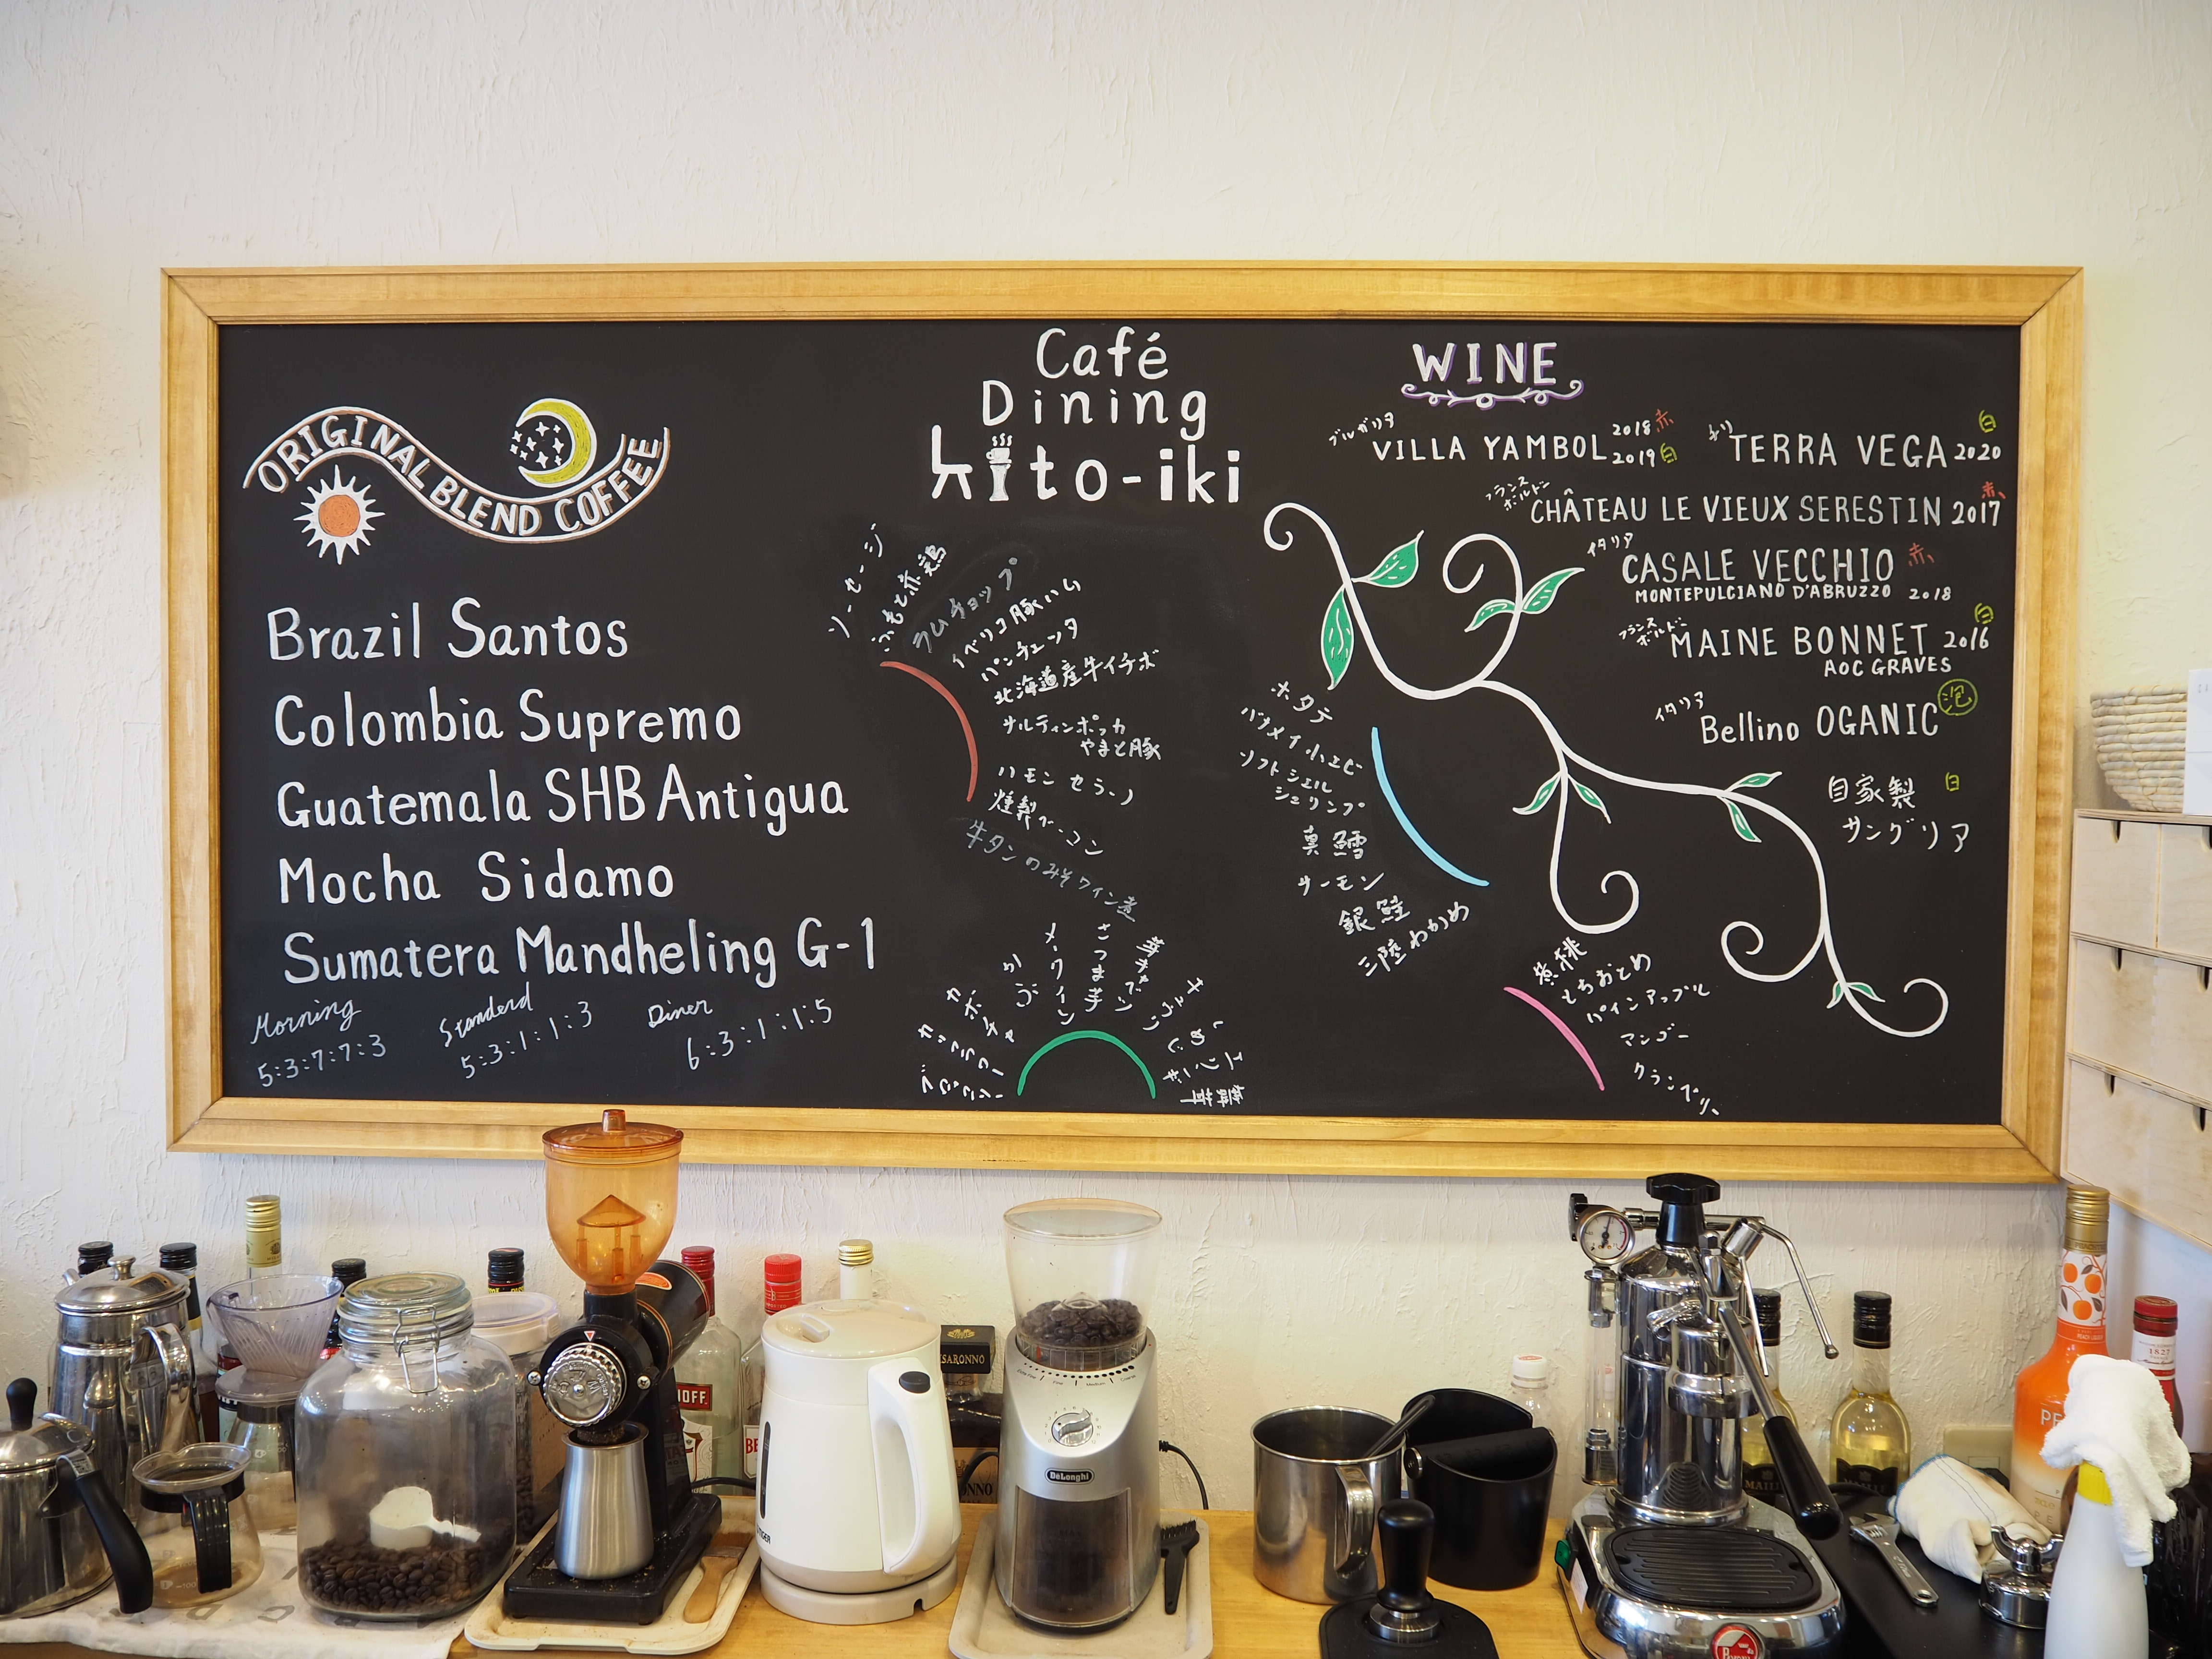 Café
Dining
hito-iki
ORIGINAL BLEND COFFEE
Brazil Santos
Colombia Supremo
Guatemala SHB Antigua
Mocha Sidamo
Sumatera Mandheling G-1
Morning
5:3:7:7:3
Standerd
5:3:1:1:3
Diner
6:3:1:1:5
ソーセージ
ふもと赤鶏
ラムチョップ
イベリコ豚ハム
パンチェッタ
北海道産牛イチボ
サルティンボッカ
やまと豚
ハモンセラーノ
燻製ベーコン
牛タンのみそワイン煮
カボチャ
かぶ
メークイン
さつま芋
芽キャベツ
キュウリ
しめじ
エリンギ
舞茸
ホタテ
バナメイ小エビ
ソフトシェル
シュリンプ
真鱈
サーモン
銀鮭
三陸わかめ
黄桃
とちおとめ
パインアップル
マンゴー
クランベリー
WINE
ブルガリア
VILLA YAMBOL 2018 赤
2019 白
チリ TERRA VEGA 2020 白
フランス
ボルドー
CHÂTEAU LE VIEUX SERESTIN 2017 赤
イタリア
CASALE VECCHIO 赤
MONTEPULCIANO D'ABRUZZO 2018
フランス
ボルドー
MAINE BONNET 2016 白
AOC GRAVES
イタリア
Bellino OGANIC 泡
自家製 白
サングリア
DeLonghi
1827